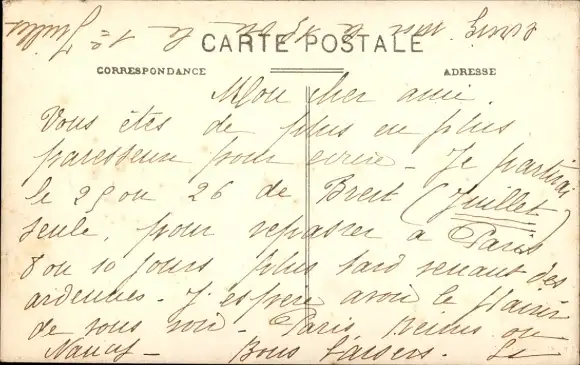 CARTE POSTALE
CORRESPONDANCE
ADRESSE
Mon cher ami.
Vous êtes de plus en plus
paresseux pour écrire - Je partirai
le 25 ou 26 de Brest (Juillet)
seule, pour repasser à Paris
8 ou 10 jours plus tard venant des
ardennes - J'espère avoir le plaisir
de vous voir - Paris, Reims ou
Nancy - Bons baisers.
le 1er Juillet